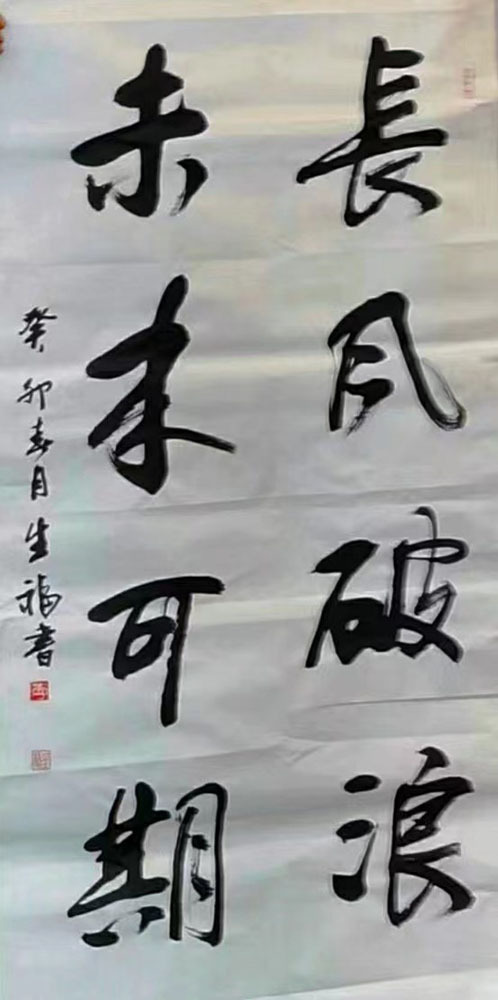 長風破浪
未来可期
癸卯春月生福書